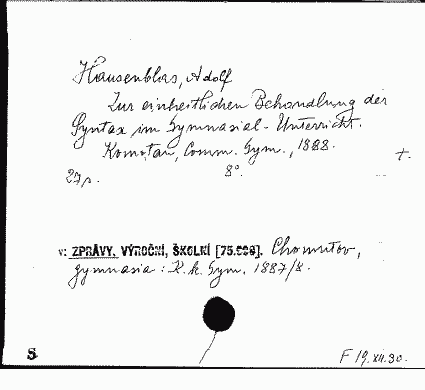 Hausenblas, Adolf
Zur einheitlichen Behandlung der
Syntax im Gymnasial-Unterricht.
Komotau, Comm. Gym., 1888. +.
27 s. 8°.
v: ZPRÁVY, VÝROČNÍ, ŠKOLNÍ [75.996]. Chomutov,
gymnasia: K. k. Gym. 1887/8.
S F 19.XII.30.